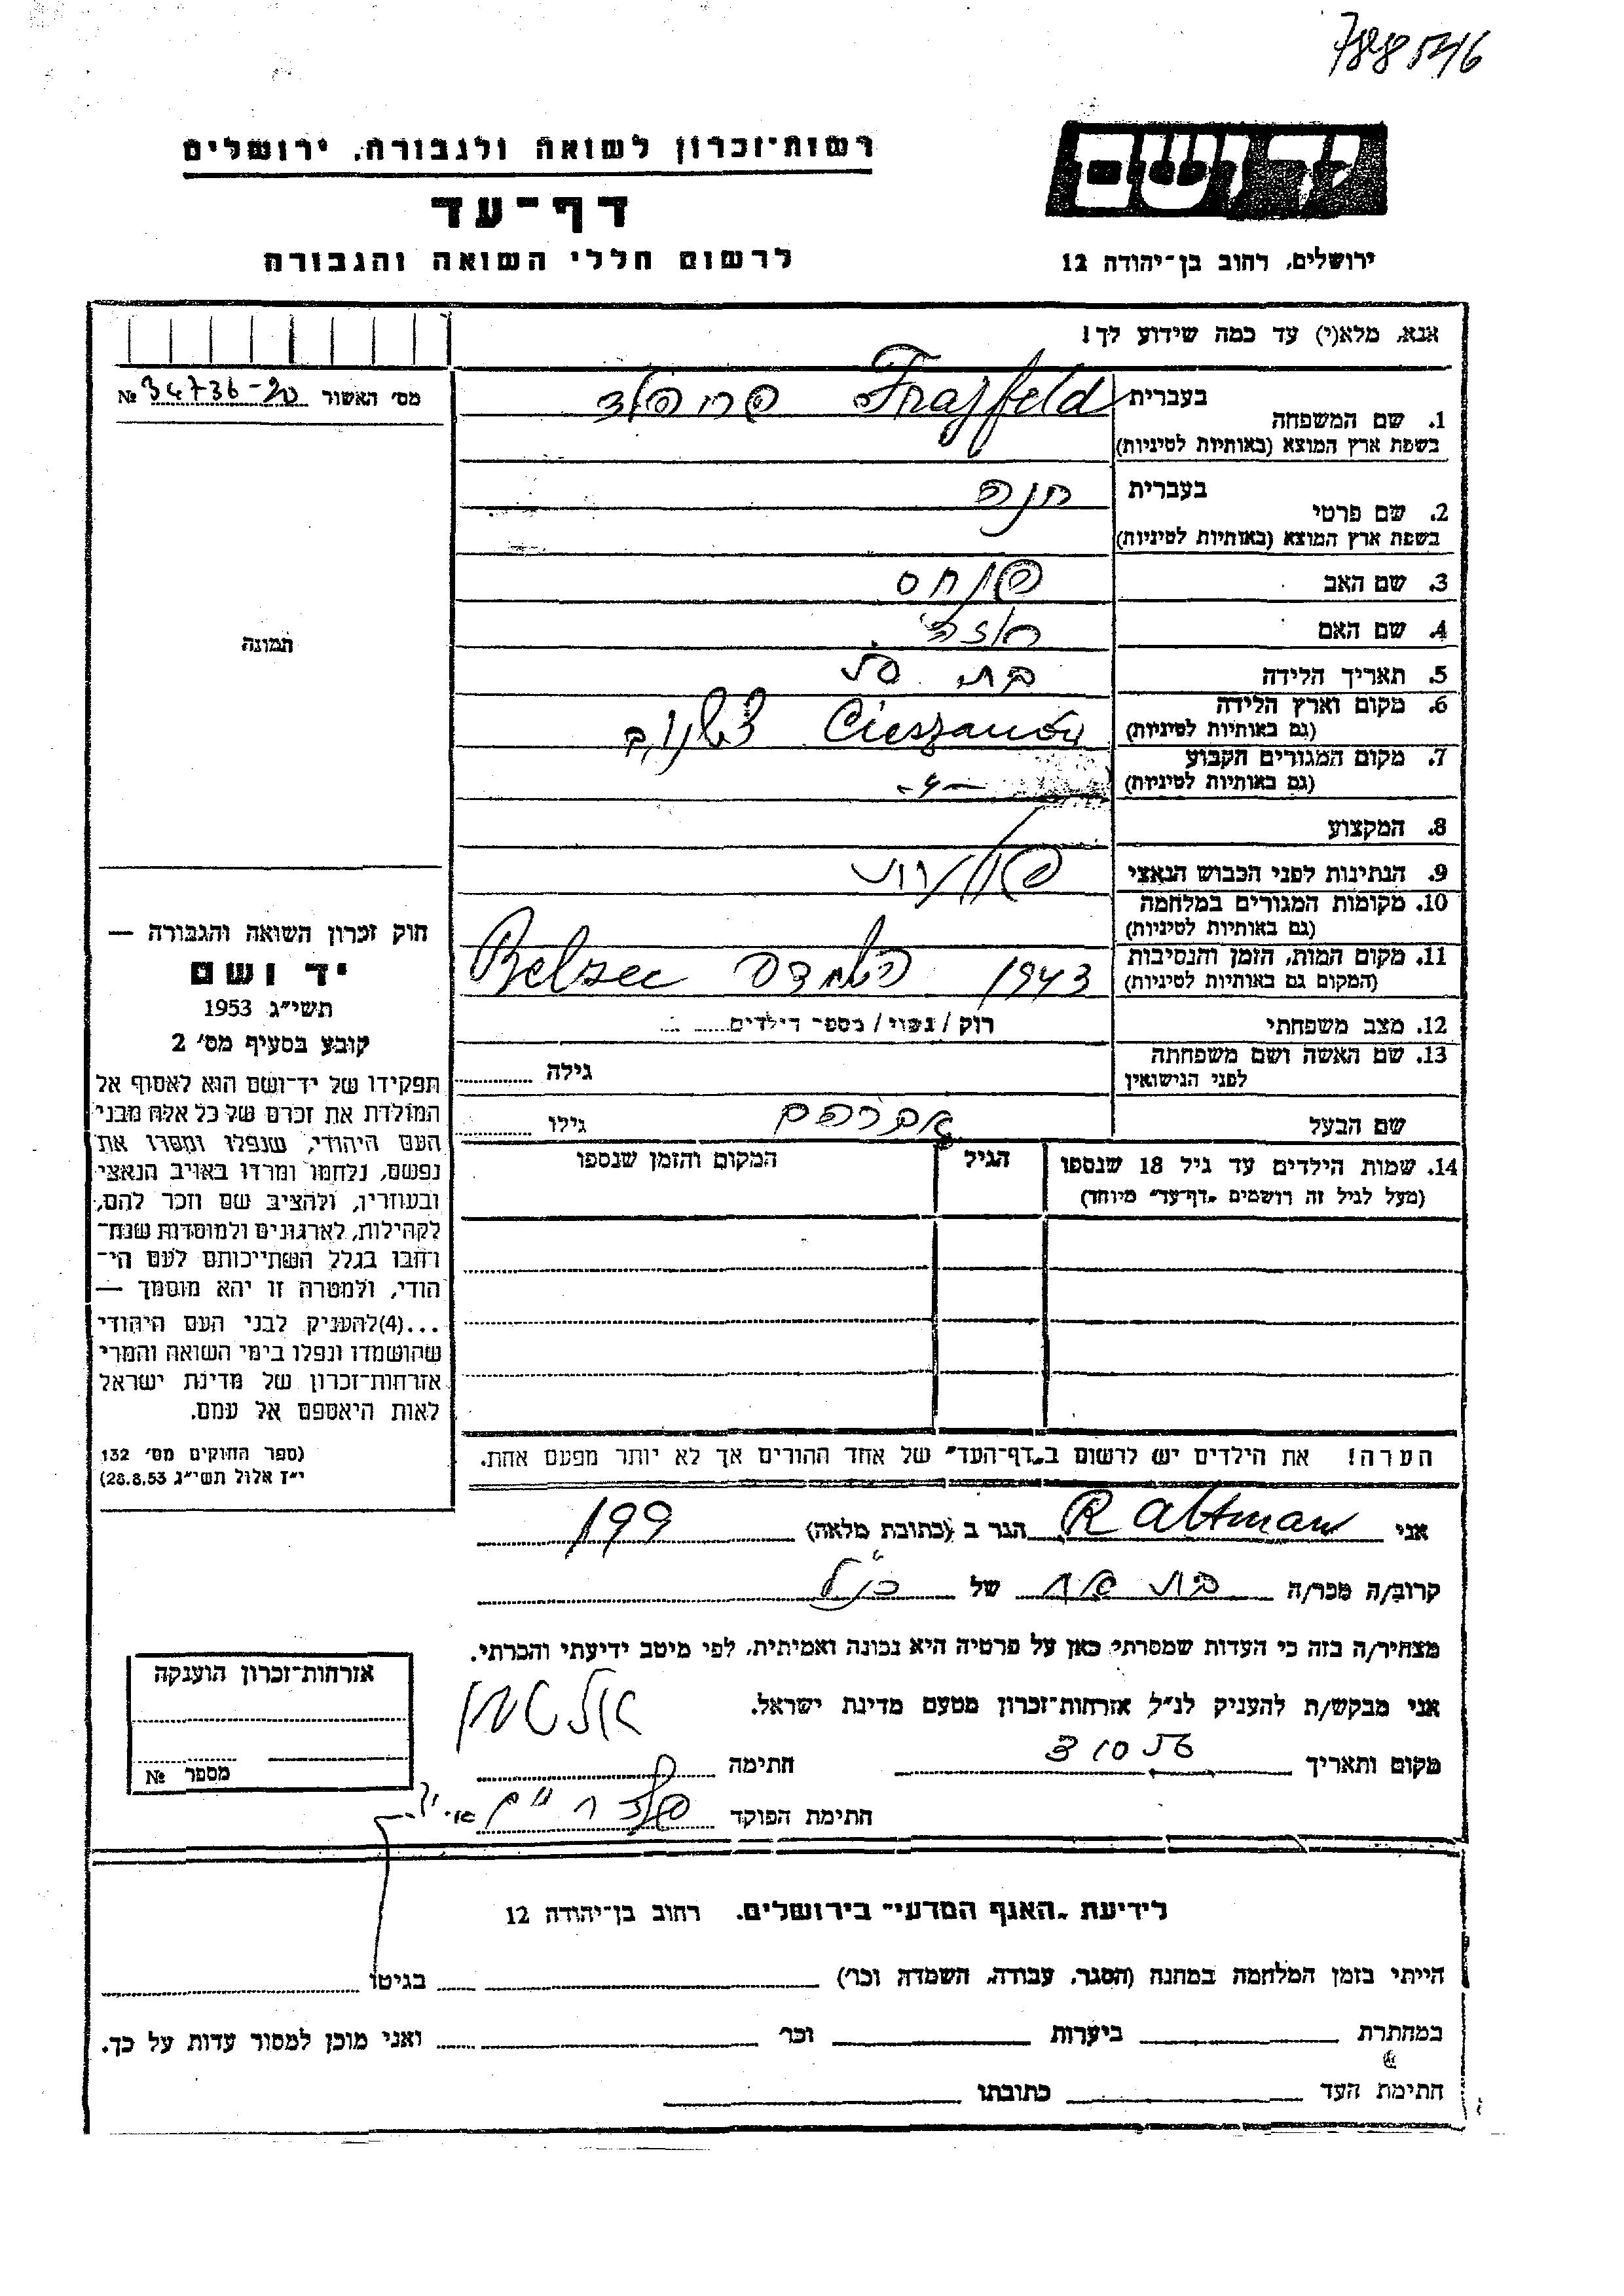 788546
רשות-זכרון לשואה ולגבורה, ירושלים
יד ושם
דף-עד
לרשום חללי השואה והגבורה
ירושלים, רחוב בן-יהודה 12
אנא, מלא(י) עד כמה שידוע לך!
מס' האשור 34736-20 №
בעברית Frajfeld
1. שם המשפחה
בשפת ארץ המוצא (באותיות לטיניות)
בעברית חנה
2. שם פרטי
בשפת ארץ המוצא (באותיות לטיניות)
3. שם האב פנחס
4. שם האם
תמונה
5. תאריך הלידה בת
6. מקום וארץ הלידה Cieszanów
(גם באותיות לטיניות)
7. מקום המגורים הקבוע -"-
(גם באותיות לטיניות)
8. המקצוע
9. הנתינות לפני הכבוש הנאצי
10. מקומות המגורים במלחמה
(גם באותיות לטיניות)
11. מקום המות, הזמן והנסיבות 1943 Belzec
(המקום גם באותיות לטיניות)
12. מצב משפחתי רוק / נשוי / מספר הילדים
13. שם האשה ושם משפחתה גילה
לפני הנישואין
שם הבעל אברהם גילו
14. שמות הילדים עד גיל 18 שנספו הגיל המקום והזמן שנספו
(מעל לגיל זה רושמים "דף-עד" מיוחד)
חוק זכרון השואה והגבורה —
יד ושם
תשי"ג 1953
קובע בסעיף מס' 2
תפקידו של יד-ושם הוא לאסוף אל
המולדת את זכרם של כל אלה מבני
העם היהודי, שנפלו ומסרו את
נפשם, נלחמו ומרדו באויב הנאצי
ובעוזריו, ולהציב שם וזכר להם,
לקהילות, לארגונים ולמוסדות שנח-
רחבו בגלל השתייכותם לעם הי-
הודי, ולמטרה זו יהא מוסמך —
...(4)להעניק לבני העם היהודי
שהושמדו ונפלו בימי השואה והמרי
אזרחות-זכרון של מדינת ישראל
לאות היאספם אל עמם.
(ספר החוקים מס' 132
י"ז אלול תשי"ג 28.8.53)
הערה! את הילדים יש לרשום ב"דף-העד" של אחד ההורים אך לא יותר מפעם אחת.
אני R Altman הגר ב (כתובת מלאה)
קרוב/ה מכר/ה בת של הנ"ל
מצהיר/ה בזה כי העדות שמסרתי כאן על פרטיה היא נכונה ואמיתית, לפי מיטב ידיעתי והכרתי.
אני מבקש/ת להעניק לנ"ל אזרחות-זכרון מטעם מדינת ישראל.
מקום ותאריך חתימה אלטמן
חתימת הפוקד
אזרחות-זכרון הוענקה
מספר №
לידיעת "האגף המדעי" בירושלים, רחוב בן-יהודה 12
הייתי בזמן המלחמה במחנה (הסגר, עבודה, השמדה וכו') בגיטו
במחתרת ביערות וכו' ואני מוכן למסור עדות על כך.
חתימת העד כתובתו